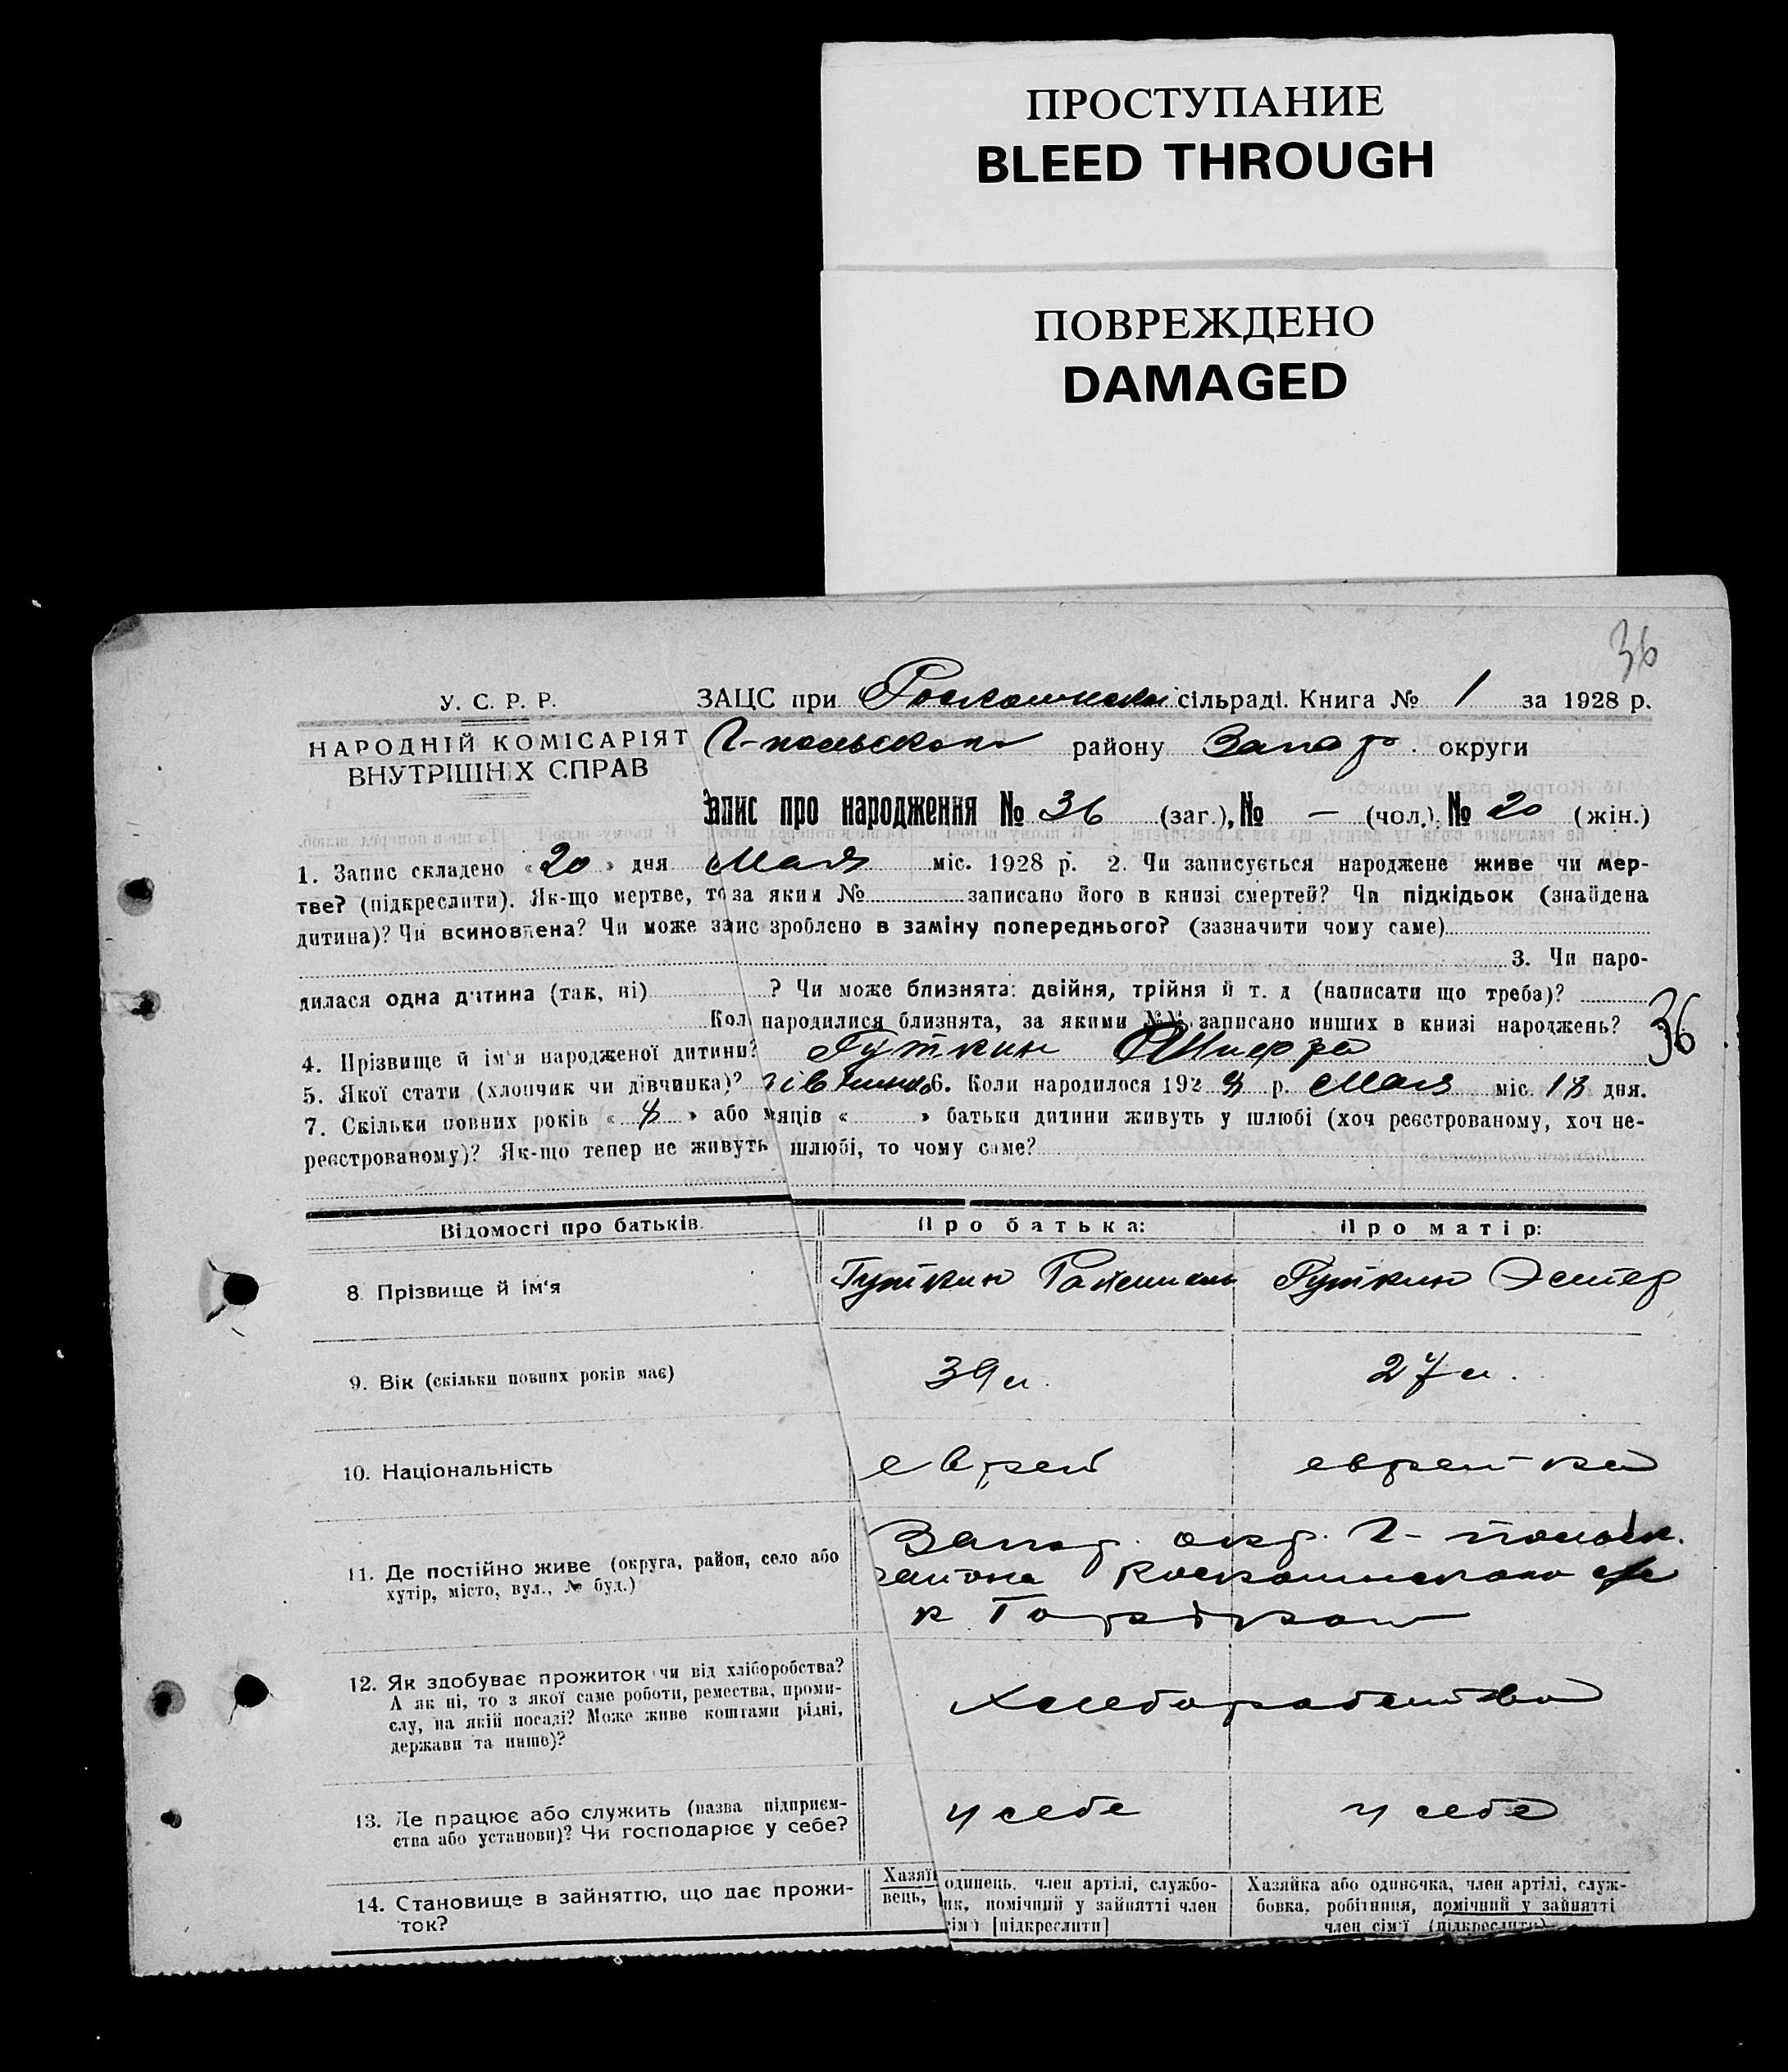 ПРОСТУПАНИЕ
BLEED THROUGH
ПОВРЕЖДЕНО
DAMAGED
36
У. С. Р. Р.
НАРОДНІЙ КОМІСАРІЯТ
ВНУТРІШНІХ СПРАВ
ЗАЦС при сільраді. Книга № 1 за 1928 р.
району Запор. округи
Запис про народження № 36 (заг.), № — (чол.), № 20 (жін.)
1. Запис складено «20» дня Мая міс. 1928 р. 2. Чи записується народжене живе чи мер-
тве? (підкреслити). Як-що мертве, то за яким № записано його в книзі смертей? Чи підкідьок (знайдена
дитина)? Чи всиновлена? Чи може запис зроблено в заміну попереднього? (зазначити чому саме)
3. Чи наро-
дилася одна дитина (так, ні) ? Чи може близнята: двійня, трійня й т. д (написати що треба)?
Кол народилися близнята, за якими №№ записано инших в книзі народжень? 36
4. Прізвище й ім'я народженої дитини? Гуткин Шифра
5. Якої стати (хлопчик чи дівчинка)? 6. Коли народилося 1928 р. Мая міс. 18 дня.
7. Скільки повних років « » або м яців « » батьки дитини живуть у шлюбі (хоч реєстрованому, хоч не-
реєстрованому)? Як-що тепер не живуть шлюбі, то чому саме?
Відомості про батьків.
Про батька:
Про матір:
8 Прізвище й ім'я
Гуткин
Гуткин Эстер
9. Вік (скільки повних років має)
39 л.
27 л.
10. Національність
еврей
еврейка
11. Де постійно живе (округа, район, село або
хутір, місто, вул., № буд.)
Запор. окр.
района
к
12. Як здобуває прожиток чи від хліборобства?
А як ні, то з якої саме роботи, ремества, проми-
слу, на якій посаді? Може живе коштами рідні,
держави та инше)?
13. Де працює або служить (назва підприєм-
ства або установи)? Чи господарює у себе?
у себе
у себе
14. Становище в зайняттю, що дає прожи-
ток?
Хазяїн одинець, член артілі, службо-
вець, ик, помічний у зайнятті член
сім'ї [підкреслити]
Хазяйка або одиночка, член артілі, служ-
бовка, робітниця, помічний у зайнятті
член сім'ї (підкреслити)